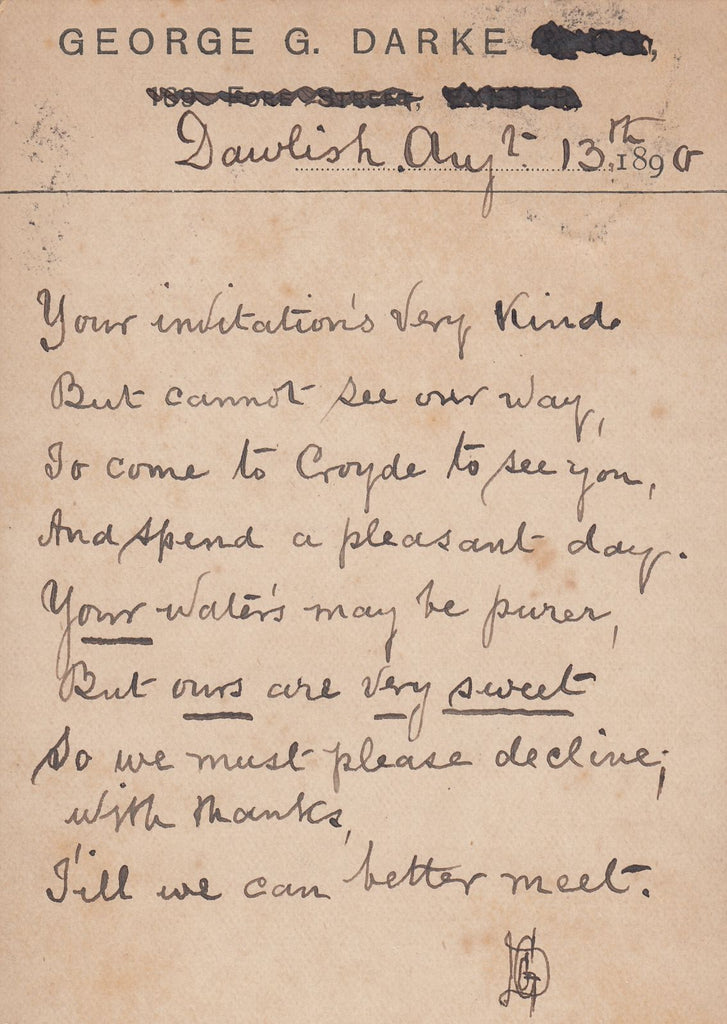 GEORGE G. DARKE
189 FORE STREET,
Dawlish. Augt. 13th 1890
Your invitation's very kind
But cannot see our way,
To come to Croyde to see you,
And spend a pleasant day.
Your water's may be purer,
But ours are very sweet
So we must please decline;
with thanks,
T'ill we can better meet.